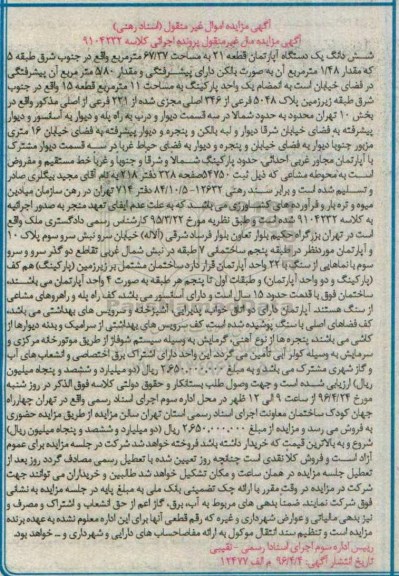 آگهی مزایده اموال غیر منقول (اسناد رهنی)
آگهی مزایده مال غیرمنقول پرونده اجرائی کلاسه ۹۱۰۴۲۳۲
شش دانگ یک دستگاه آپارتمان قطعه ۲۱ به مساحت ۶۷/۳۷ مترمربع واقع در جنوب شرق طبقه ۵
که مقدار ۱/۴۸ مترمربع آن به صورت بلکن دارای پیشرفتگی و مقدار ۵/۸۰ متر مربع آن پیشرفتگی
در فضای خیابان است به انضمام یک واحد پارکینگ به مساحت ۱۱ مترمربع قطعه ۱۵ واقع در جنوب
شرق طبقه زیرزمین پلاک ۵۰۴۸ فرعی از ۳۴۶ اصلی مجزی شده از ۲۲۱ فرعی از اصلی مذکور واقع در
بخش ۱۰ تهران محدود به حدود شمالا در سه قسمت دیوار و درب به راه پله و دیوار به آسانسور و دیوار
پیشرفته به فضای خیابان شرقا دیوار و لبه بلکن و پنجره و دیوار پیشرفته به فضای خیابان ۱۶ متری
مزبور جنوبا دیوار به فضای خیابان و پنجره و دیوار به فضای حیاط غربا در سه قسمت دیوار مشترک
با آپارتمان مجاور غربی احداثی. حدود پارکینگ شمالا و شرقا و جنوبا و غربا خط مستقیم و مفروض
است به محوطه مشاعی که ذیل ثبت ۵۴۷۵۰ صفحه ۳۲۸ دفتر ۲۱۸ به نام آقای مجید بیگلری صادر
و تسلیم شده است و برابر سند رهنی ۱۲۶۳۲-۸۴/۱۰/۵ دفتر ۷۱۴ تهران در رهن سازمان میادین
میوه و تره بار و فرآورده های کشاورزی می باشد که به علت عدم ایفای تعهد منجر به صدور اجرائیه
به کلاسه ۹۱۰۴۲۳۲ شده است و طبق نظریه مورخ ۹۵/۳/۲۲ کارشناس رسمی دادگستری ملک واقع
است در تهران بزرگراه حکیم بلوار تعاون بلوار فرساد شرقی (آلاله) خیابان سرو نبش سرو سوم پلاک ۱۰
و آپارتمان موردنظر در طبقه پنجم ساختمانی ۷ طبقه در نبش شمال غربی تقاطع دو گذر سرو و سرو
سوم با نماهایی از سنگ با ۲۲ واحد آپارتمان قرار دارد ساختمان مشتمل بر زیرزمین (پارکینگ) هم کف
(پارکینگ و دو واحد آپارتمان) و طبقات اول تا پنجم هر طبقه به صورت ۴ واحد آپارتمان می باشند.
ساختمان فوق با قدمت حدود ۱۵ سال است و دارای آسانسور می باشد. کف راه پله و راهروهای مشاعی
از سنگ هستند. آپارتمان دارای دو اتاق خوابه پذیرایی، آشپزخانه و سرویس های بهداشتی می باشد.
کف فضاهای اصلی با سنگ پوشیده شده است. کف سرویس های بهداشتی از سرامیک و بدنه دیوارها از
کاشی می باشند. پنجره ها از نوع آهنی، گرمایش به وسیله سیستم شوفاژ از طریق موتورخانه مرکزی و
سرمایش به وسیله کولر آبی تأمین می گردد. این واحد دارای اشتراک برق اختصاصی و انشعاب های آب
و گاز شهری مشترک می باشد و به مبلغ ۲.۶۵۰.۰۰۰.۰۰۰ ریال (دو میلیارد و ششصد و پنجاه میلیون
ریال) ارزیابی شده است و جهت وصول طلب بستانکار و حقوق دولتی کلاسه فوق الذکر در روز شنبه
مورخ ۹۶/۴/۲۴ از ساعت ۹ الی ۱۲ ظهر در محل اداره سوم اجرای اسناد رسمی واقع در تهران چهارراه
جهان کودک ساختمان معاونت اجرای اسناد رسمی استان تهران سالن مزایده از طریق مزایده حضوری
به فروش می رسد و مزایده از مبلغ ۲.۶۵۰.۰۰۰.۰۰۰ ریال (دو میلیارد و ششصد و پنجاه میلیون ریال)
شروع و به بالاترین قیمت که خریدار داشته باشد فروخته خواهد شد. شرکت در جلسه مزایده برای عموم
آزاد است و فروش کلا نقدی است چنانچه روز تعیین شده با تعطیل رسمی مصادف گردد روز بعد از
تعطیل جلسه مزایده در همان ساعت و مکان تشکیل خواهد شد. طالبین و خریداران می توانند جهت
شرکت در مزایده در وقت مقرر با ارائه چک تضمینی بانک ملی به مبلغ پایه در جلسه مزایده به نشانی
فوق شرکت نمایند. ضمنا بدهی های مربوط به آب، برق، گاز اعم از حق انشعاب و اشتراک و مصرف و
نیز بدهی مالیاتی و عوارض شهرداری و غیره که رقم قطعی آنها برای این اداره معلوم نشده به عهده برنده
مزایده است و تنظیم سند انتقال موکول به ارائه مفاصاحساب های دارایی و شهرداری و ... خواهد بود.
رییس اداره سوم اجرای اسناد رسمی - نقیبی
تاریخ انتشار آگهی: ۹۶/۴/۴ م الف ۱۲۴۷۷